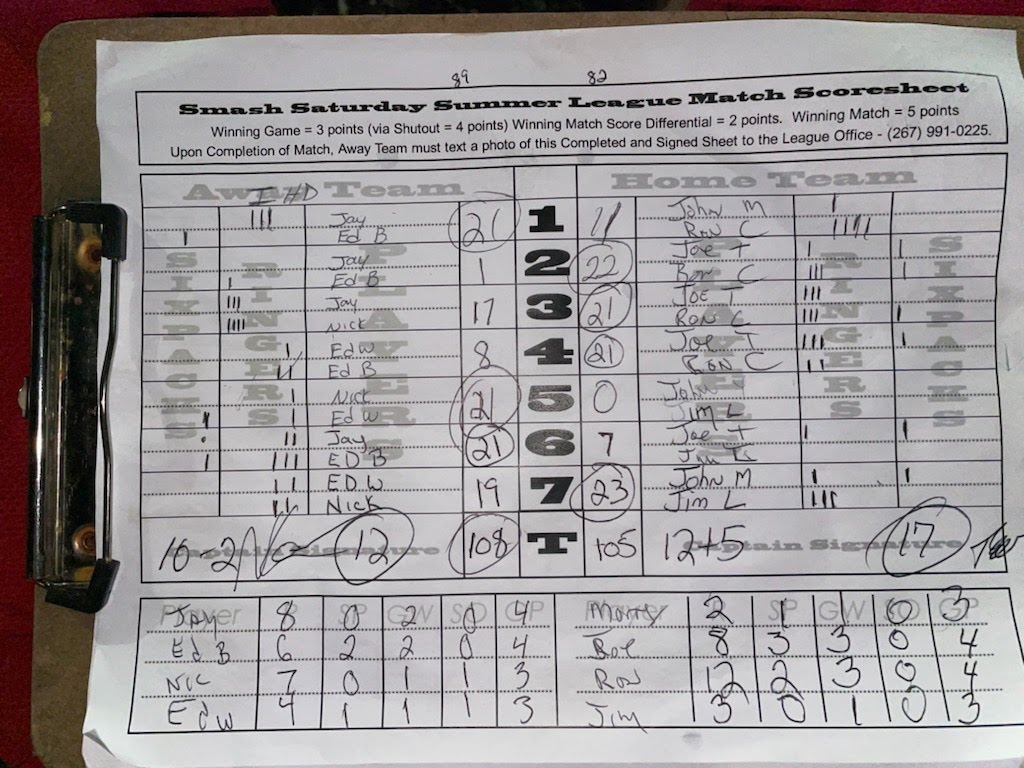 89 82
Smash Saturday Summer League Match Scoresheet
Winning Game = 3 points (via Shutout = 4 points) Winning Match Score Differential = 2 points. Winning Match = 5 points
Upon Completion of Match, Away Team must text a photo of this Completed and Signed Sheet to the League Office - (267) 991-0225.
Away Team Home Team
Jay 21 1 11 John M
Ed B Ron C
Jay 1 2 22 Joe T
Ed B Ron C
Jay 17 3 21 Joe T
Nick Ron C
Ed W 8 4 21 Joe T
Ed B Ron C
Nick 21 5 0 John
Ed W Jim L
Jay 21 6 7 Joe T
ED B
ED W 19 7 23 John M
Nick Jim L
SIXPACKS RINGERS PLAYERS PLAYERS RINGERS SIXPACKS
10-2 12 108 T 105 12+5 17
Captain Signature Captain Signature
Player R SP GW SO GP Player R SP GW SO GP
Jay 8 0 2 0 4 2 1 1 0 3
Ed B 6 2 2 0 4 8 3 3 0 4
Nic 7 0 1 1 3 Ron 12 2 3 0 4
Ed W 4 1 1 1 3 Jim 3 0 1 0 3